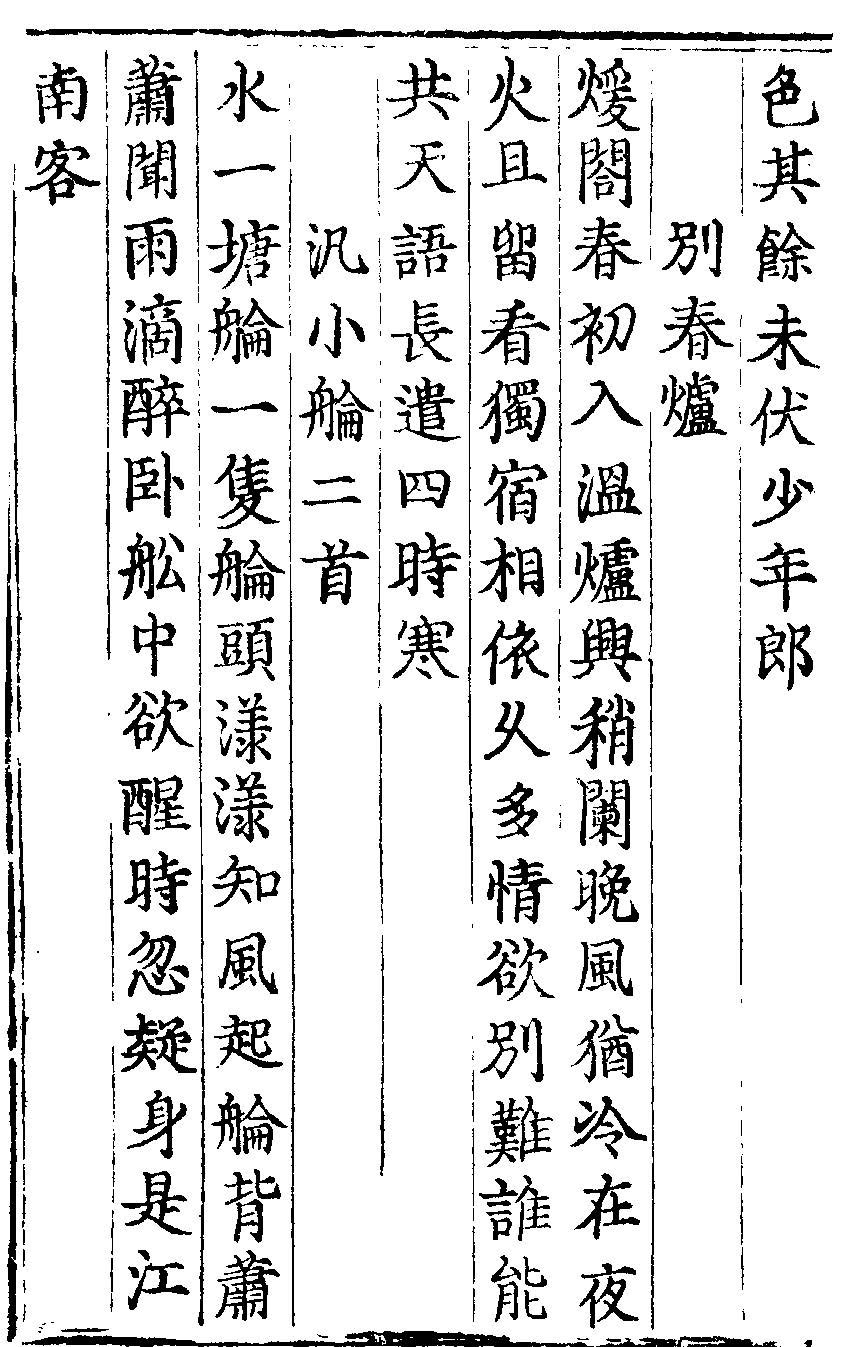 色其餘未伏少年郎
別春爐
煖閤春初入溫爐興稍闌晚風猶冷在夜
火且留看獨宿相依久多情欲別難誰能
共天語長遣四時寒
汎小䑳二首
水一塘䑳一隻䑳頭漾漾知風起䑳背蕭
蕭聞雨滴醉卧舩中欲醒時忽疑身是江
南客